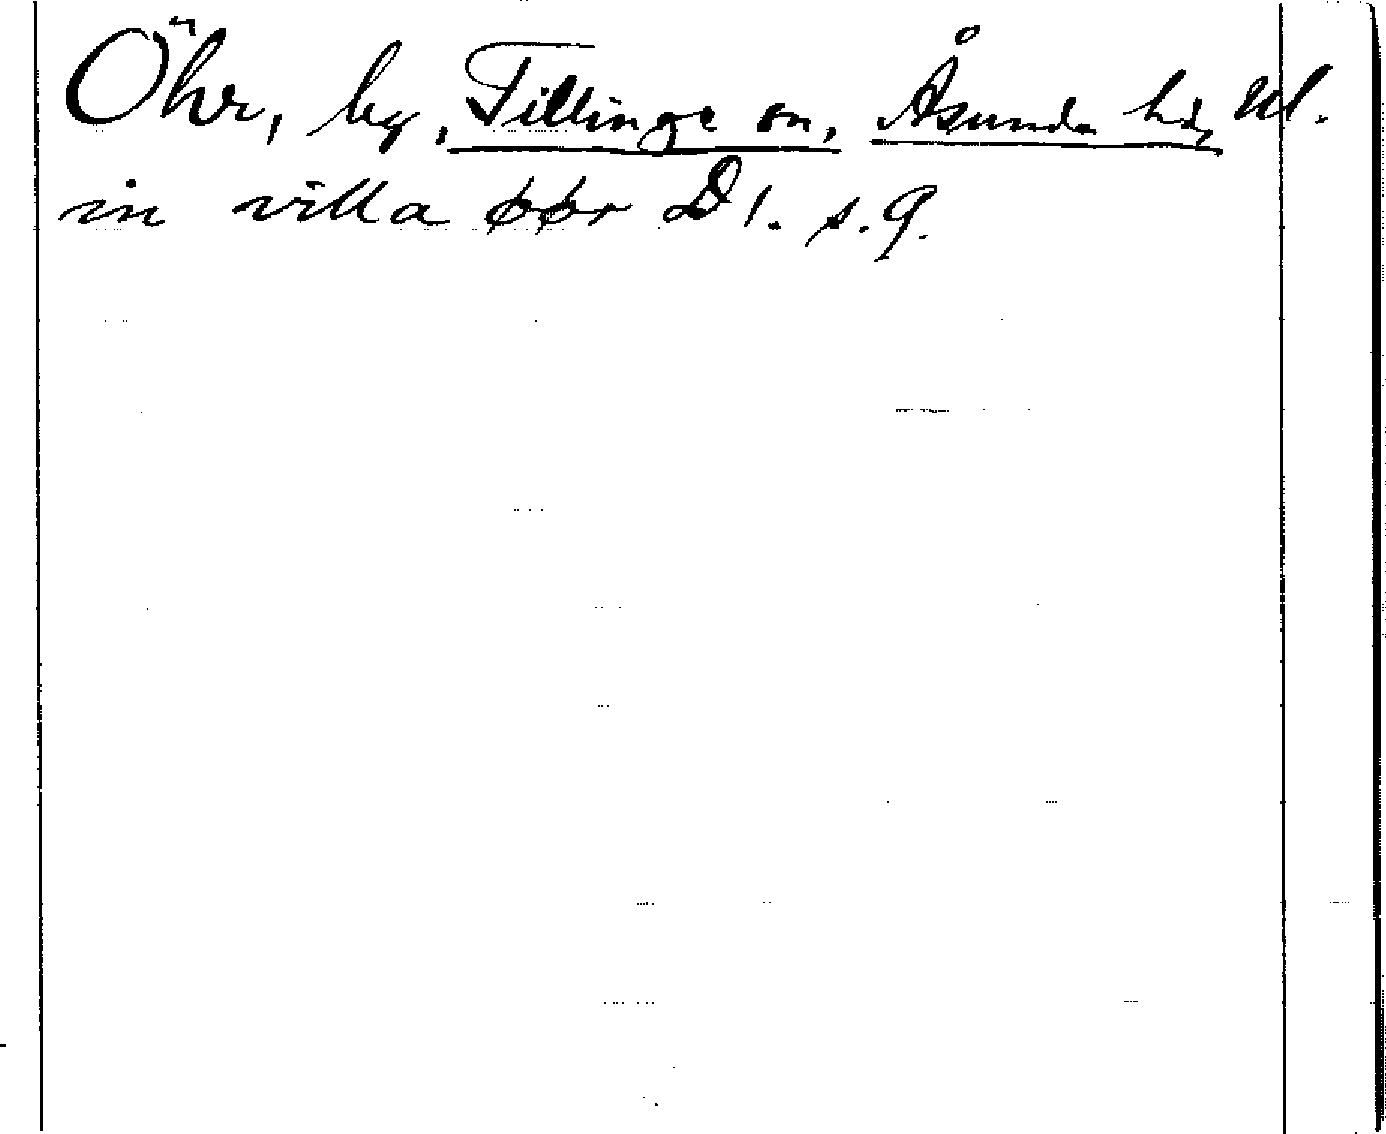 Öhr, by, Tillinge sn, Åsunda hd, Ul.
in villa øør D 1. s. 9.